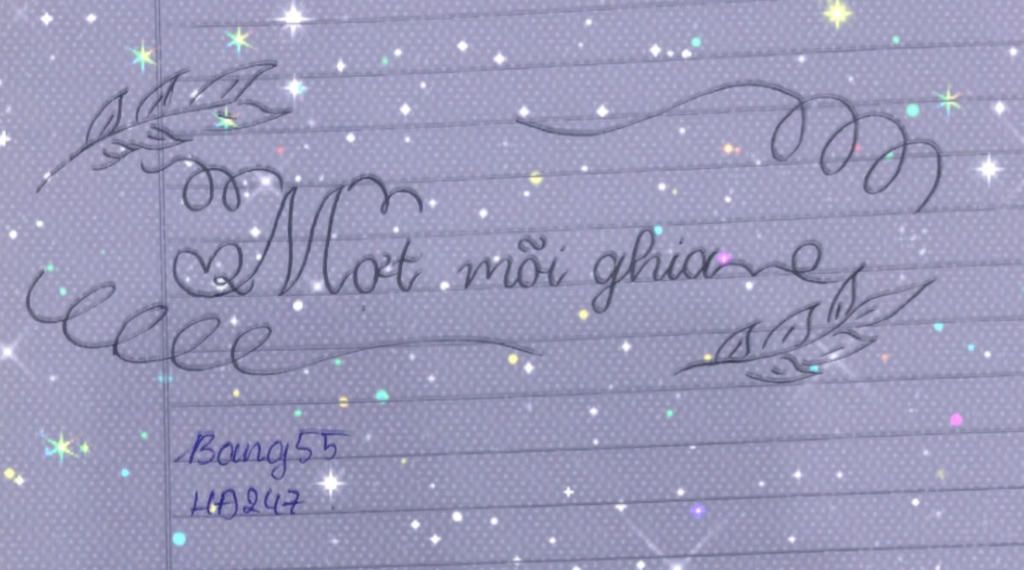 Mơt mõi ghia
Bang55
HĐ247